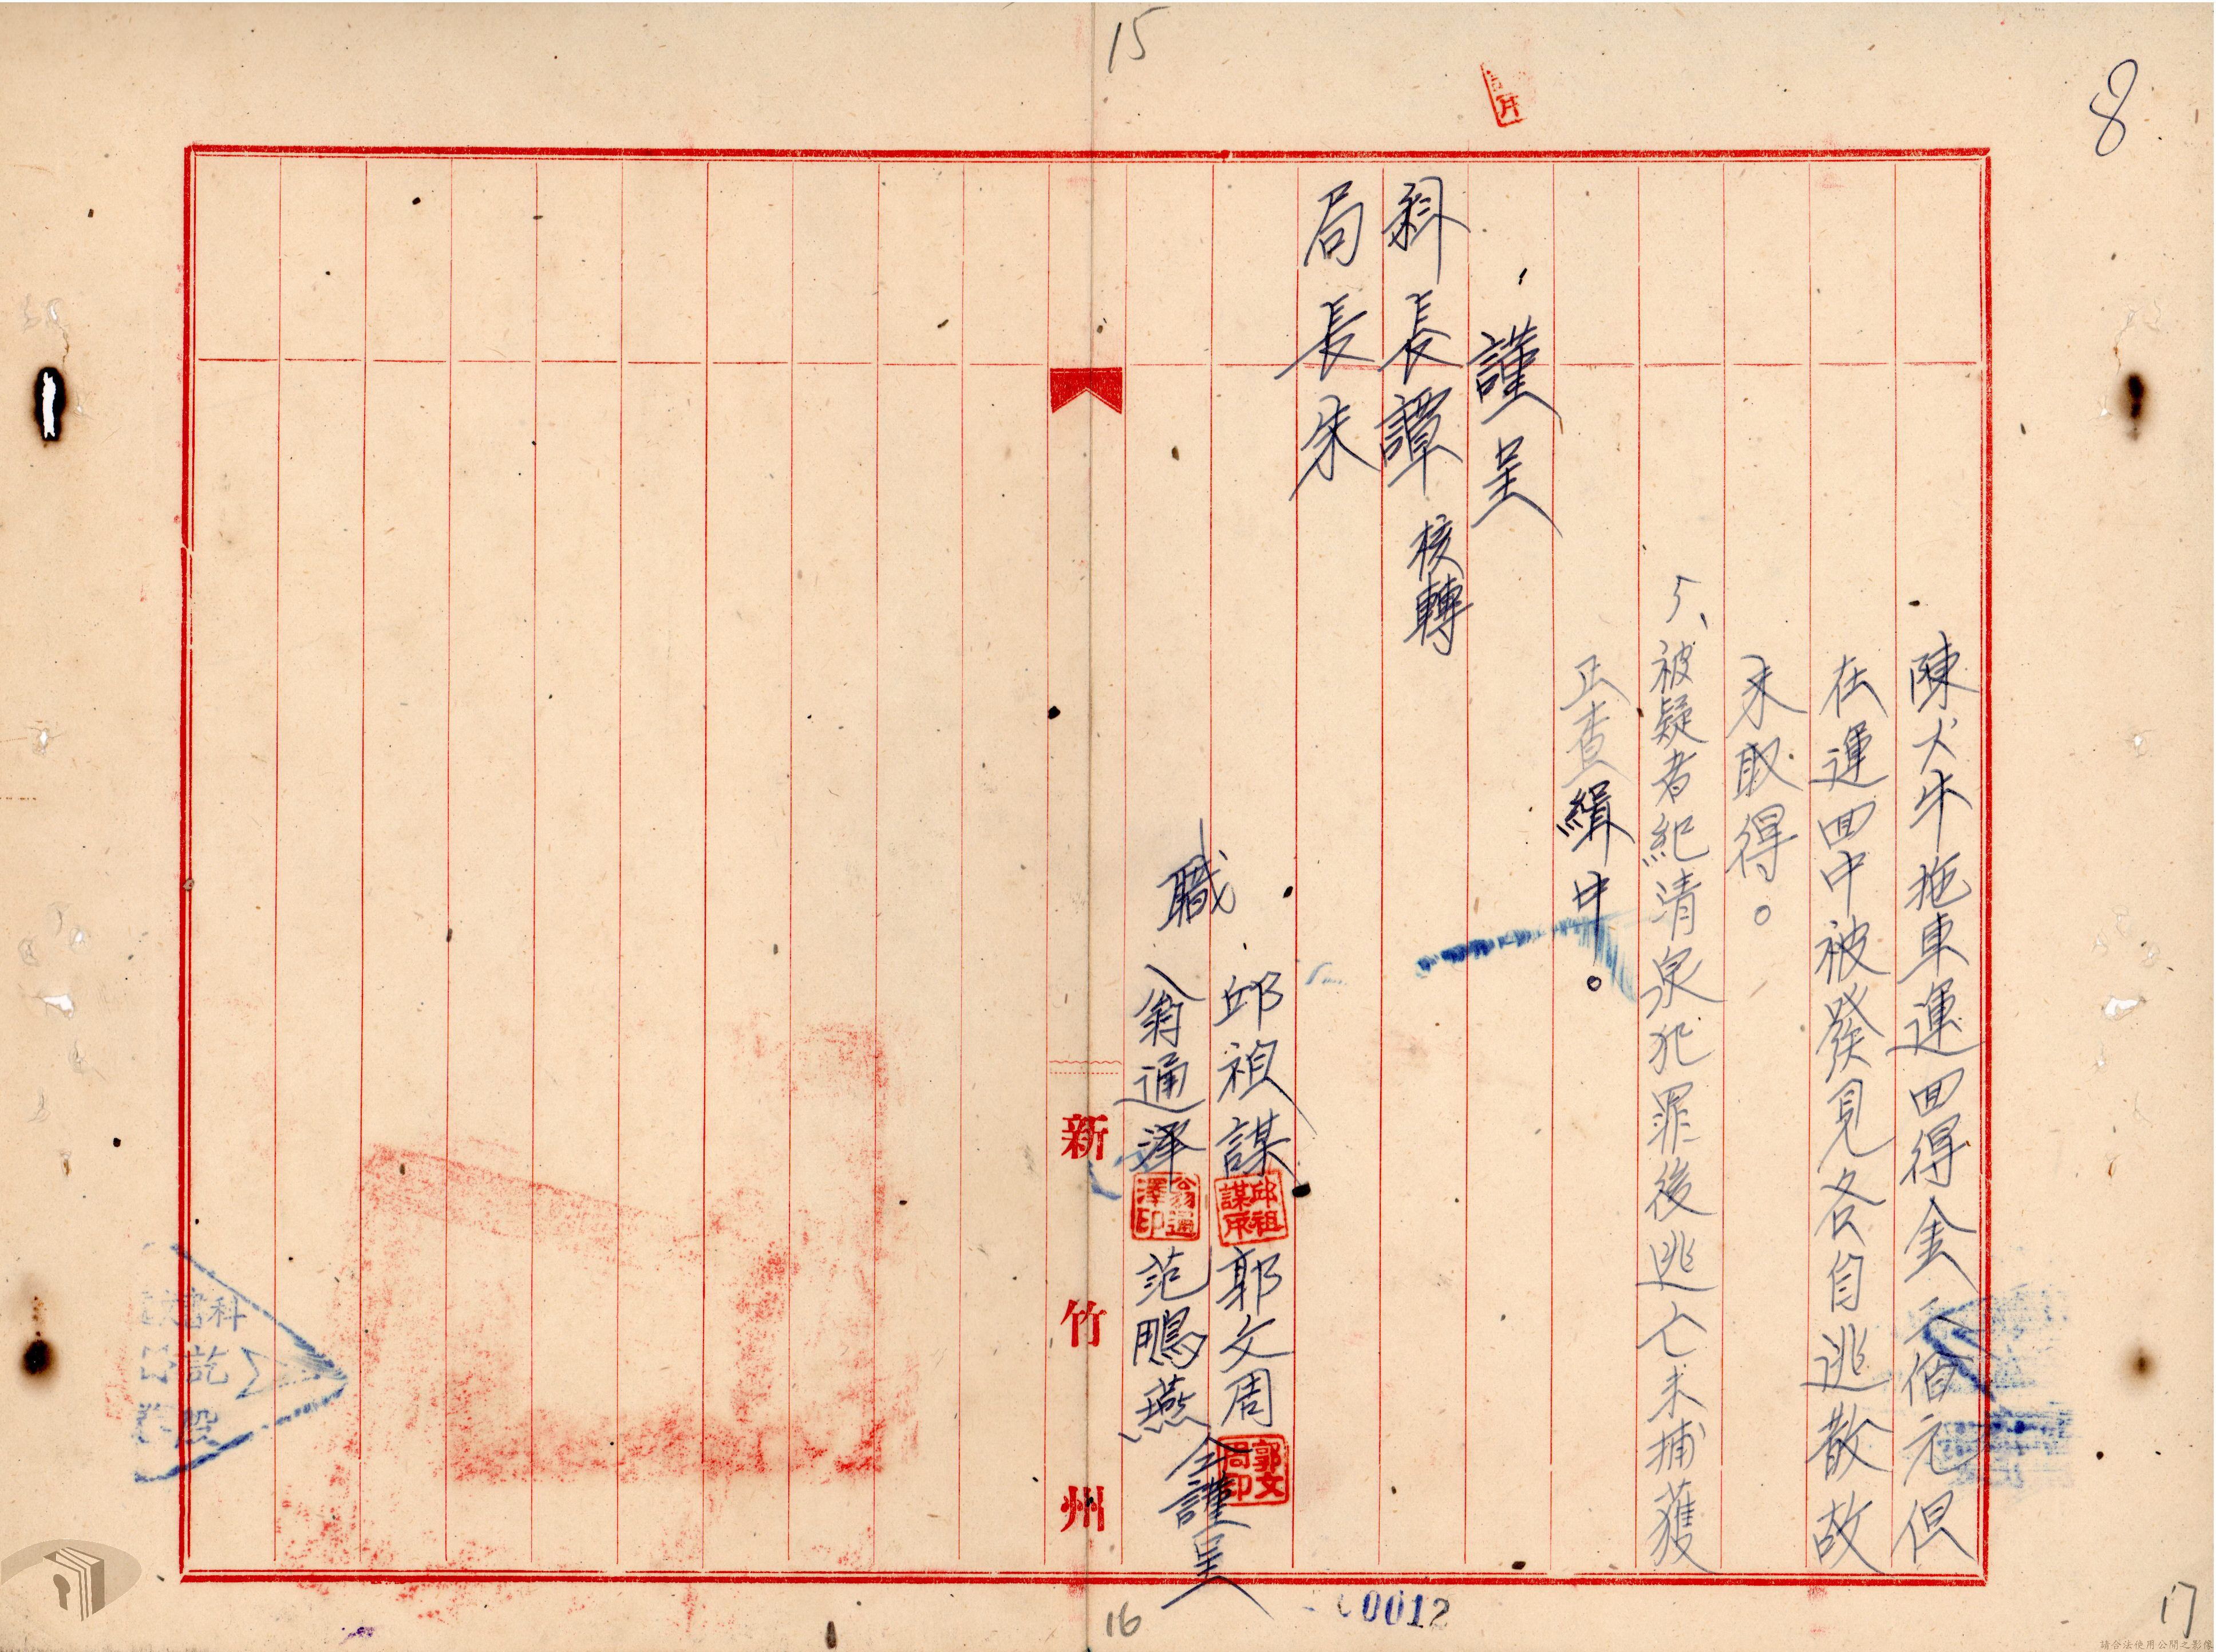 陳火牛拖車運回得金二佰元但
在運回中被發見各自逃散故
未取得。
5、被疑者紀清泉犯罪後逃亡未捕獲
正查緝中。
謹呈
科長譚 核轉
局長朱
職
邱祖謀 郭文周
翁通澤 范鵰燕 仝謹呈
邱祖謀印
郭文周印
翁通澤印
新竹州
15
8
16
00012
17
請合法使用公開之影像